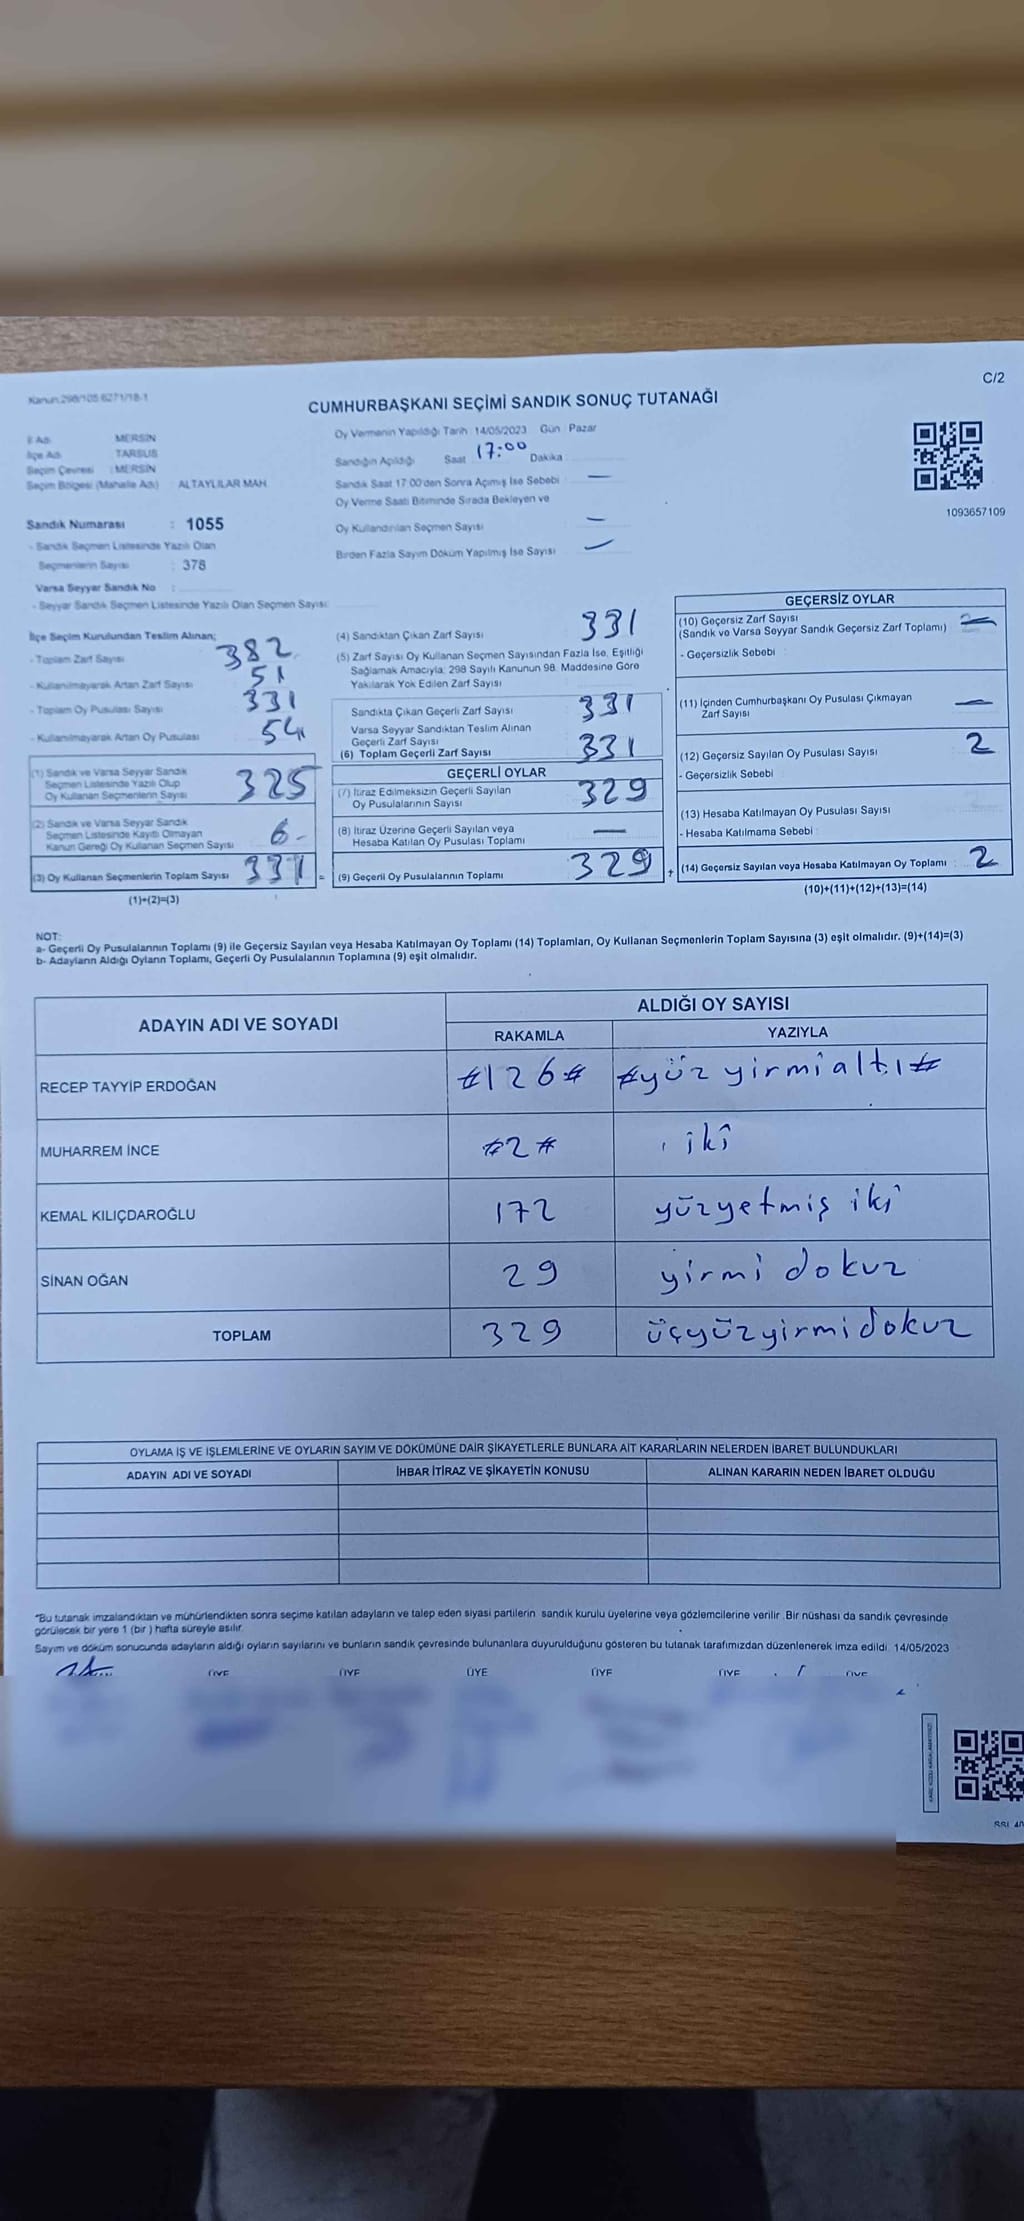 C/2
Kanun:298/105 6271/18-1
CUMHURBAŞKANI SEÇİMİ SANDIK SONUÇ TUTANAĞI
İl Adı : MERSİN
İlçe Adı : TARSUS
Seçim Çevresi : MERSİN
Seçim Bölgesi (Mahalle Adı) : ALTAYLILAR MAH.
Sandık Numarası : 1055
- Sandık Seçmen Listesinde Yazılı Olan
Seçmenlerin Sayısı : 378
Varsa Seyyar Sandık No :
- Seyyar Sandık Seçmen Listesinde Yazılı Olan Seçmen Sayısı:
Oy Vermenin Yapıldığı Tarih : 14/05/2023 Gün : Pazar
Sandığın Açıldığı Saat 17:00 Dakika
Sandık Saat 17:00'den Sonra Açımış İse Sebebi —
Oy Verme Saati Bitiminde Sırada Bekleyen ve
Oy Kullandırılan Seçmen Sayısı —
Birden Fazla Sayım Döküm Yapılmış İse Sayısı —
1093657109
İlçe Seçim Kurulundan Teslim Alınan;
- Toplam Zarf Sayısı 382
- Kullanılmayarak Artan Zarf Sayısı 51
- Toplam Oy Pusulası Sayısı 331
- Kullanılmayarak Artan Oy Pusulası 54
(1) Sandık ve Varsa Seyyar Sandık
Seçmen Listesinde Yazılı Olup
Oy Kullanan Seçmenlerin Sayısı 325
(2) Sandık ve Varsa Seyyar Sandık
Seçmen Listesinde Kayıtlı Olmayan
Kanun Gereği Oy Kullanan Seçmen Sayısı 6
(3) Oy Kullanan Seçmenlerin Toplam Sayısı 331 =
(1)+(2)=(3)
(4) Sandıktan Çıkan Zarf Sayısı 331
(5) Zarf Sayısı Oy Kullanan Seçmen Sayısından Fazla İse, Eşitliği
Sağlamak Amacıyla; 298 Sayılı Kanunun 98. Maddesine Göre
Yakılarak Yok Edilen Zarf Sayısı
Sandıkta Çıkan Geçerli Zarf Sayısı 331
Varsa Seyyar Sandıktan Teslim Alınan
Geçerli Zarf Sayısı
(6) Toplam Geçerli Zarf Sayısı 331
GEÇERLİ OYLAR
(7) İtiraz Edilmeksizin Geçerli Sayılan
Oy Pusulalarının Sayısı 329
(8) İtiraz Üzerine Geçerli Sayılan veya
Hesaba Katılan Oy Pusulası Toplamı —
(9) Geçerli Oy Pusulalarının Toplamı 329 +
GEÇERSİZ OYLAR
(10) Geçersiz Zarf Sayısı
(Sandık ve Varsa Seyyar Sandık Geçersiz Zarf Toplamı)
- Geçersizlik Sebebi :
(11) İçinden Cumhurbaşkanı Oy Pusulası Çıkmayan
Zarf Sayısı —
(12) Geçersiz Sayılan Oy Pusulası Sayısı 2
- Geçersizlik Sebebi
(13) Hesaba Katılmayan Oy Pusulası Sayısı
- Hesaba Katılmama Sebebi :
(14) Geçersiz Sayılan veya Hesaba Katılmayan Oy Toplamı : 2
(10)+(11)+(12)+(13)=(14)
NOT:
a- Geçerli Oy Pusulalarının Toplamı (9) ile Geçersiz Sayılan veya Hesaba Katılmayan Oy Toplamı (14) Toplamları, Oy Kullanan Seçmenlerin Toplam Sayısına (3) eşit olmalıdır. (9)+(14)=(3)
b- Adayların Aldığı Oyların Toplamı, Geçerli Oy Pusulalarının Toplamına (9) eşit olmalıdır.
ADAYIN ADI VE SOYADI
ALDIĞI OY SAYISI
RAKAMLA YAZIYLA
RECEP TAYYİP ERDOĞAN #126# #yüz yirmi altı#
MUHARREM İNCE #2# iki
KEMAL KILIÇDAROĞLU 172 yüzyetmiş iki
SİNAN OĞAN 29 yirmi dokuz
TOPLAM 329 üçyüzyirmidokuz
OYLAMA İŞ VE İŞLEMLERİNE VE OYLARIN SAYIM VE DÖKÜMÜNE DAİR ŞİKAYETLERLE BUNLARA AİT KARARLARIN NELERDEN İBARET BULUNDUKLARI
ADAYIN ADI VE SOYADI İHBAR İTİRAZ VE ŞİKAYETİN KONUSU ALINAN KARARIN NEDEN İBARET OLDUĞU
*Bu tutanak imzalandıktan ve mühürlendikten sonra seçime katılan adayların ve talep eden siyasi partilerin sandık kurulu üyelerine veya gözlemcilerine verilir. Bir nüshası da sandık çevresinde
görülecek bir yere 1 (bir ) hafta süreyle asılır.
Sayım ve döküm sonucunda adayların aldığı oyların sayılarını ve bunların sandık çevresinde bulunanlara duyurulduğunu gösteren bu tutanak tarafımızdan düzenlenerek imza edildi. 14/05/2023
ÜYE ÜYE ÜYE ÜYE ÜYE ÜYE